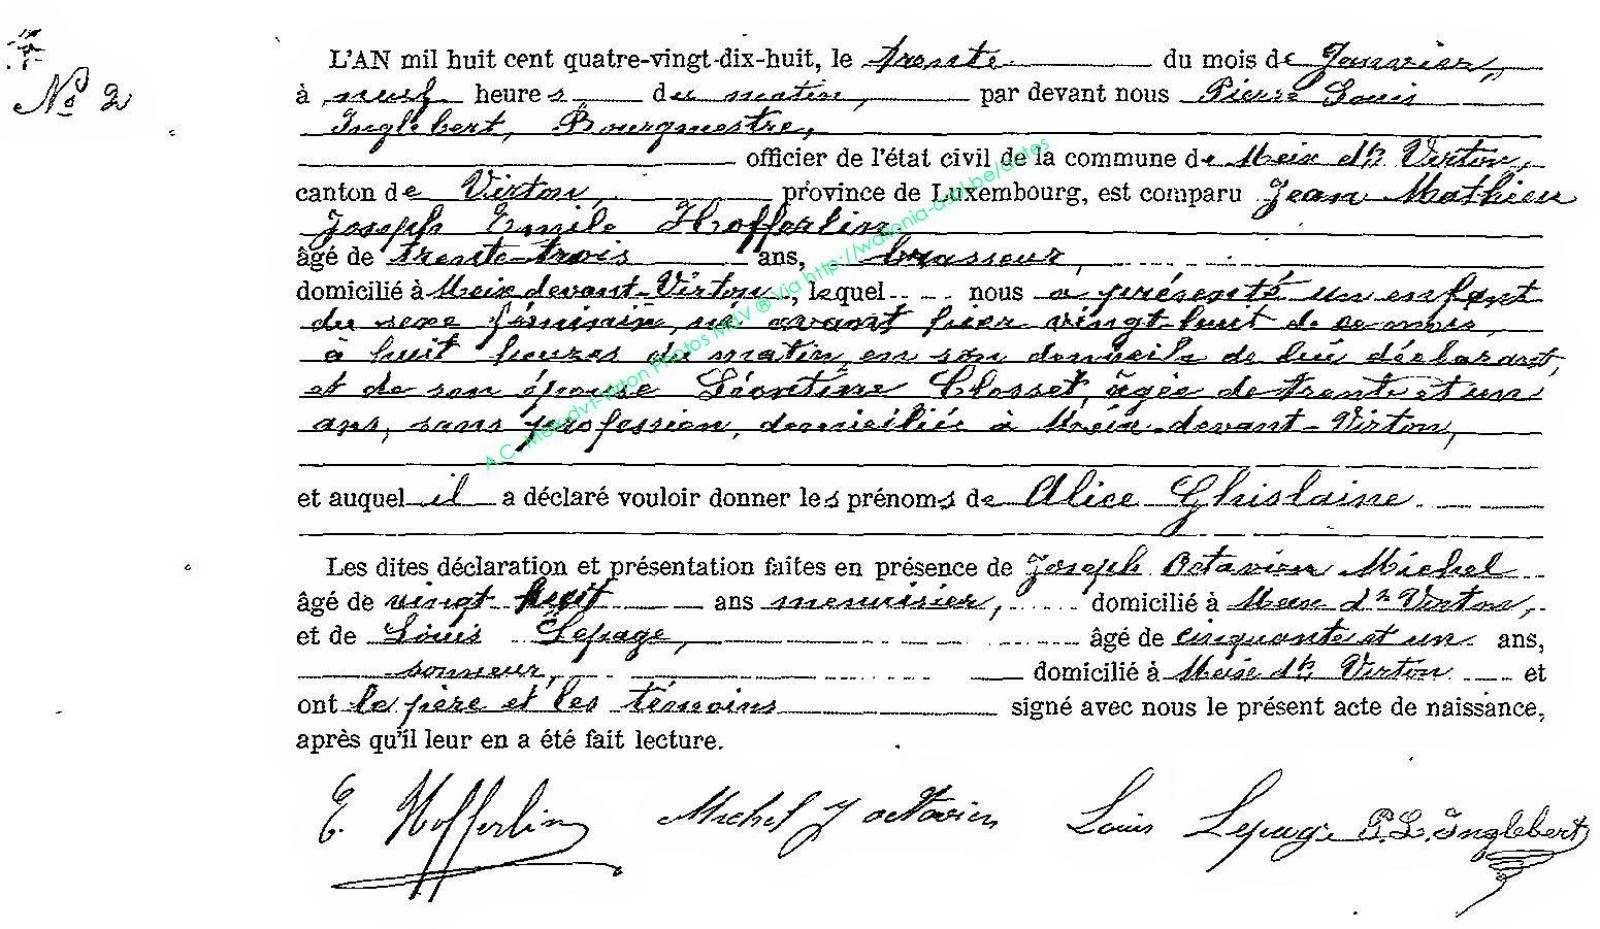 Nº 2
L'AN mil huit cent quatre-vingt-dix-huit, le trente du mois de Janvier,
à neuf heures du matin, par devant nous Pierre Louis
Inglebert, Bourgmestre,
officier de l'état civil de la commune de Meix dt Virton,
canton de Virton, province de Luxembourg, est comparu Jean Mathieu
Joseph Emile Hofferlin
âgé de trente-trois ans, brasseur,
domicilié à Meix devant-Virton, lequel nous a présenté un enfant
du sexe féminin, né avant hier vingt-huit de ce mois,
à huit heures du matin, en son domicile de lui déclarant,
et de son épouse Léontine Closset, âgée de trente et un
ans, sans profession, domiciliée à Meix-devant-Virton,
et auquel il a déclaré vouloir donner les prénoms de Alice Ghislaine
Les dites déclaration et présentation faites en présence de Joseph Octavien Michel
âgé de vingt huit ans menuisier, domicilié à Meix dt Virton,
et de Louis Lepage, âgé de cinquante et un ans,
sonneur, domicilié à Meix dt Virton et
ont le père et les témoins signé avec nous le présent acte de naissance,
après qu'il leur en a été fait lecture.
E. Hofferlin Michel J octavien Louis Lepage P. L. Inglebert
A.C. Meix-dvt-Virton Photos MSV ® Via http://wallonia-asbl.be/actes